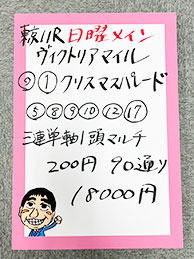 東京11R 日曜メイン
ヴィクトリアマイル
◎①クリスマスパレード
⑤⑧⑨⑩⑫⑰
三連単軸1頭マルチ
200円 90通り
18000円